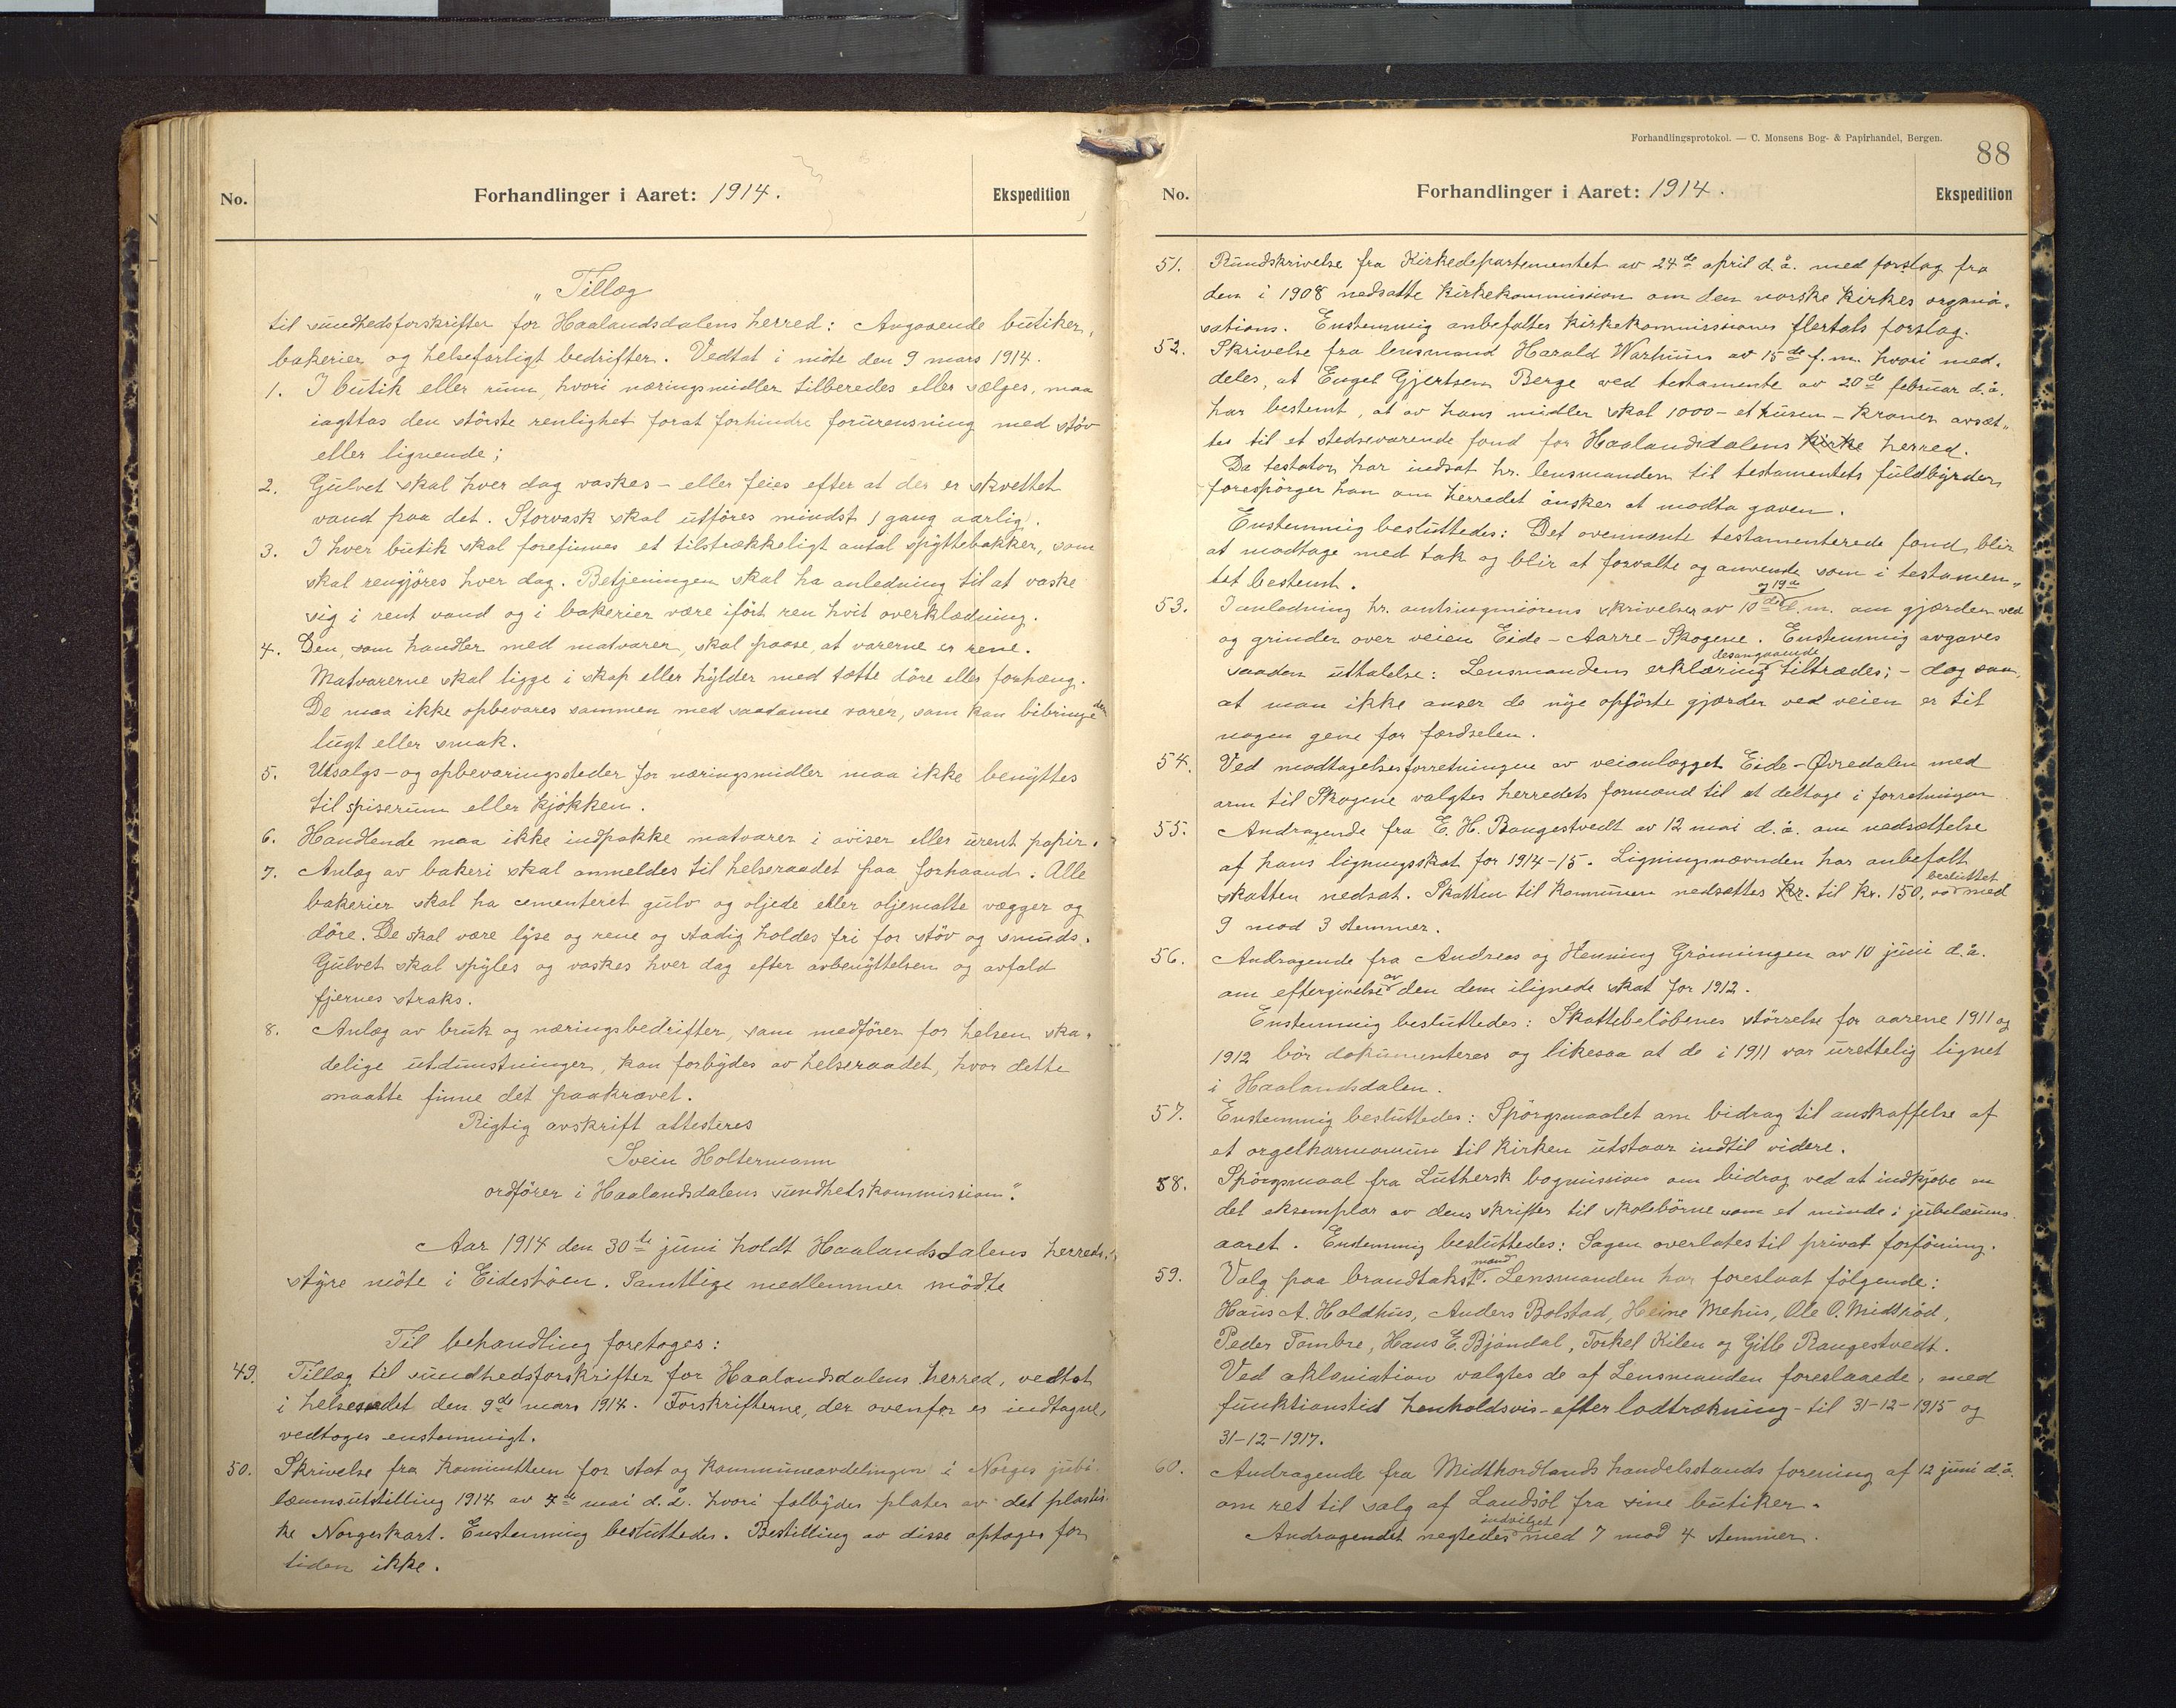 No.
Forhandlinger i Aaret: 1914.
Ekspedition
„Tillæg
til sundhedsforskrifter for Haalandsdalens herred: Angaaende butiker,
bakerier og helsefarligt bedrifter. Vedtat i möte den 9 mars 1914.
1. I butik eller rum, hvori næringsmidler tilberedes eller sælges, maa
iagttas den störste renlighet forat forhindre forurensning med stöv
eller lignende;
2. Gulvet skal hver dag vaskes - eller feies efter at der er skvettet
vand paa det. Storvask skal utföres mindst 1 gang aarlig.
3. I hver butik skal forefinnes et tilstrækkeligt antal spyttebakker, som
skal rengjöres hver dag. Betjeningen skal ha anledning til at vaske
sig i rent vand og i bakerier være ifört ren hvit overklædning.
4. Den, som handler med matvarer, skal paase, at varerne er rene.
Matvarerne skal ligge i skap eller hylder med tætte döre eller forhæng.
De maa ikke opbevares sammen med saadanne varer, som kan bibringe dem
lugt eller smak.
5. Utsalgs- og opbevaringssteder for næringsmidler maa ikke benyttes
til spiserum eller kjökken.
6. Handlende maa ikke indpakke matvarer i aviser eller urent papir.
7. Anlæg av bakeri skal anmeldes til helseraadet paa forhaand. Alle
bakerier skal ha cementeret gulv og oljede eller oljemalte vægger og
döre. De skal være lyse og rene og stadig holdes fri for stöv og smuds.
Gulvet skal spyles og vaskes hver dag efter avbenyttelsen og avfald
fjernes straks.
8. Anlæg av bruk og næringsbedrifter, som medförer for helsen ska-
delige utdunstninger, kan forbydes av helseraadet, hvor dette
maatte finne det paakrævet.
Rigtig avskrift attesteres
Svein Holtermann
ordförer i Haalandsdalens sundhetskommission".
Aar 1914 den 30te juni holdt Haalandsdalens herreds-
styre möte i Eideshöen. Samtlige medlemmer mödte
Til behandling foretoges:
49. Tillæg til sundhedsforskrifter for Haalandsdalens herred, vedtat
i helseraadet den 9de mars 1914. Forskrifterne, der ovenfor er indtagne,
vedtoges enstemmigt.
50. Skrivelse fra komiutteen for stat og kommuneavdelingen i Norges jubi-
læumsutstilling 1914 av 7de mai d.å. hvori falbydes plater av det plastis-
ke Norgeskart. Enstemmig besluttedes. Bestilling av disse optages for
tiden ikke.
Forhandlingsprotokol. — C. Monsens Bog- & Papirhandel, Bergen.
88
No.
Forhandlinger i Aaret: 1914.
Ekspedition
51. Rundskrivelse fra Kirkedepartementet av 24de april d.å. med forslag fra
den i 1908 nedsatte kirkekommission om den norske kirkes organi-
sations. Enstemmig anbefaltes kirkekommissionens flertals forslag.
52. Skrivelse fra lensmand Harald Warhuus av 15de f.m. hvori med-
deles, at Engel Gjertsen Berge ved testamente av 20de februar d.å.
har bestemt, at av hans midler skal 1000 - et tusen - kroner avsæt-
tes til et stedsevarende fond for Haalandsdalens kirke herred.
Da testator har indsat hr. lensmanden til testamentets fuldbyrder,
forespörger han om herredet önsker at modta gaven.
Enstemmig besluttedes: Det ovennævnte testamenterede fond blir
at modtage med tak og blir at forvalte og anvende som i testamen-
tet bestemt.
53. I anledning hr. amtsingeniörens skrivelser av 10de og 19de d.m. om gjærder ved
og grinder over veien Eide - Aarre - Skogene. Enstemmig avgaves
saadan uttalelse: Lensmandens erklæring desangaaende tiltrædes; - dog saa,
at man ikke anser de nye opförte gjærder ved veien er til
nogen gene for færdselen.
54. Ved modtagelsesforretningen av veianlægget Eide - Øvredalen med
arm til Skogene valgtes herredets formænd til at deltage i forretningen
55. Andragende fra E. H. Bangestvedt av 12 mai d.å. om nedsættelse
af hans ligningsskat for 1914-15. Ligningsnævnden har anbefalt
skatten nedsat. Skatten til kommunen nedsættes kr. til kr. 150, besluttet med
9 mod 3 stemmer.
56. Andragende fra Andreas og Henning Gröningen av 10 juni d.å.
om eftergivelse av den dem ilignede skat for 1912.
Enstemmig besluttedes: Skattebelöbenes störrelse for aarene 1911 og
1912 bör dokumenteres og likesaa at de i 1911 var urettelig lignet
i Haalandsdalen.
57. Enstemmig besluttedes: Spörgsmaalet om bidrag til anskaffelse af
et orgelharmonium til kirken utstaar indtil videre.
58. Spörgsmaal fra Luthersk bogmission om bidrag ved at indkjøbe en
del eksemplar av dens skrifter til skolebörne som et minde i jubelæums-
aaret. Enstemmig besluttedes: Sagen overlates til privat forföining.
59. Valg paa brandtakstmænd. Lensmanden har foreslaat fölgende:
Hans A. Holdhus, Anders Bolstad, Heine Mehus, Ole O. Midtröd,
Peder Tombre, Hans E. Bjöndal, Torkel Kilen og Gitle Rangestvedt.
Ved aklamation valgtes de af Lensmanden foreslaaede, med
funktionstid henholdsvis - efter lodtrækning - til 31-12-1915 og
31-12-1917.
60. Andragende fra Midthordlands handelsstands forening af 12 juni d.å.
om ret til salg af Landsöl fra sine butiker.
Andragendet negtedes indvilget med 7 mod 4 stemmer.